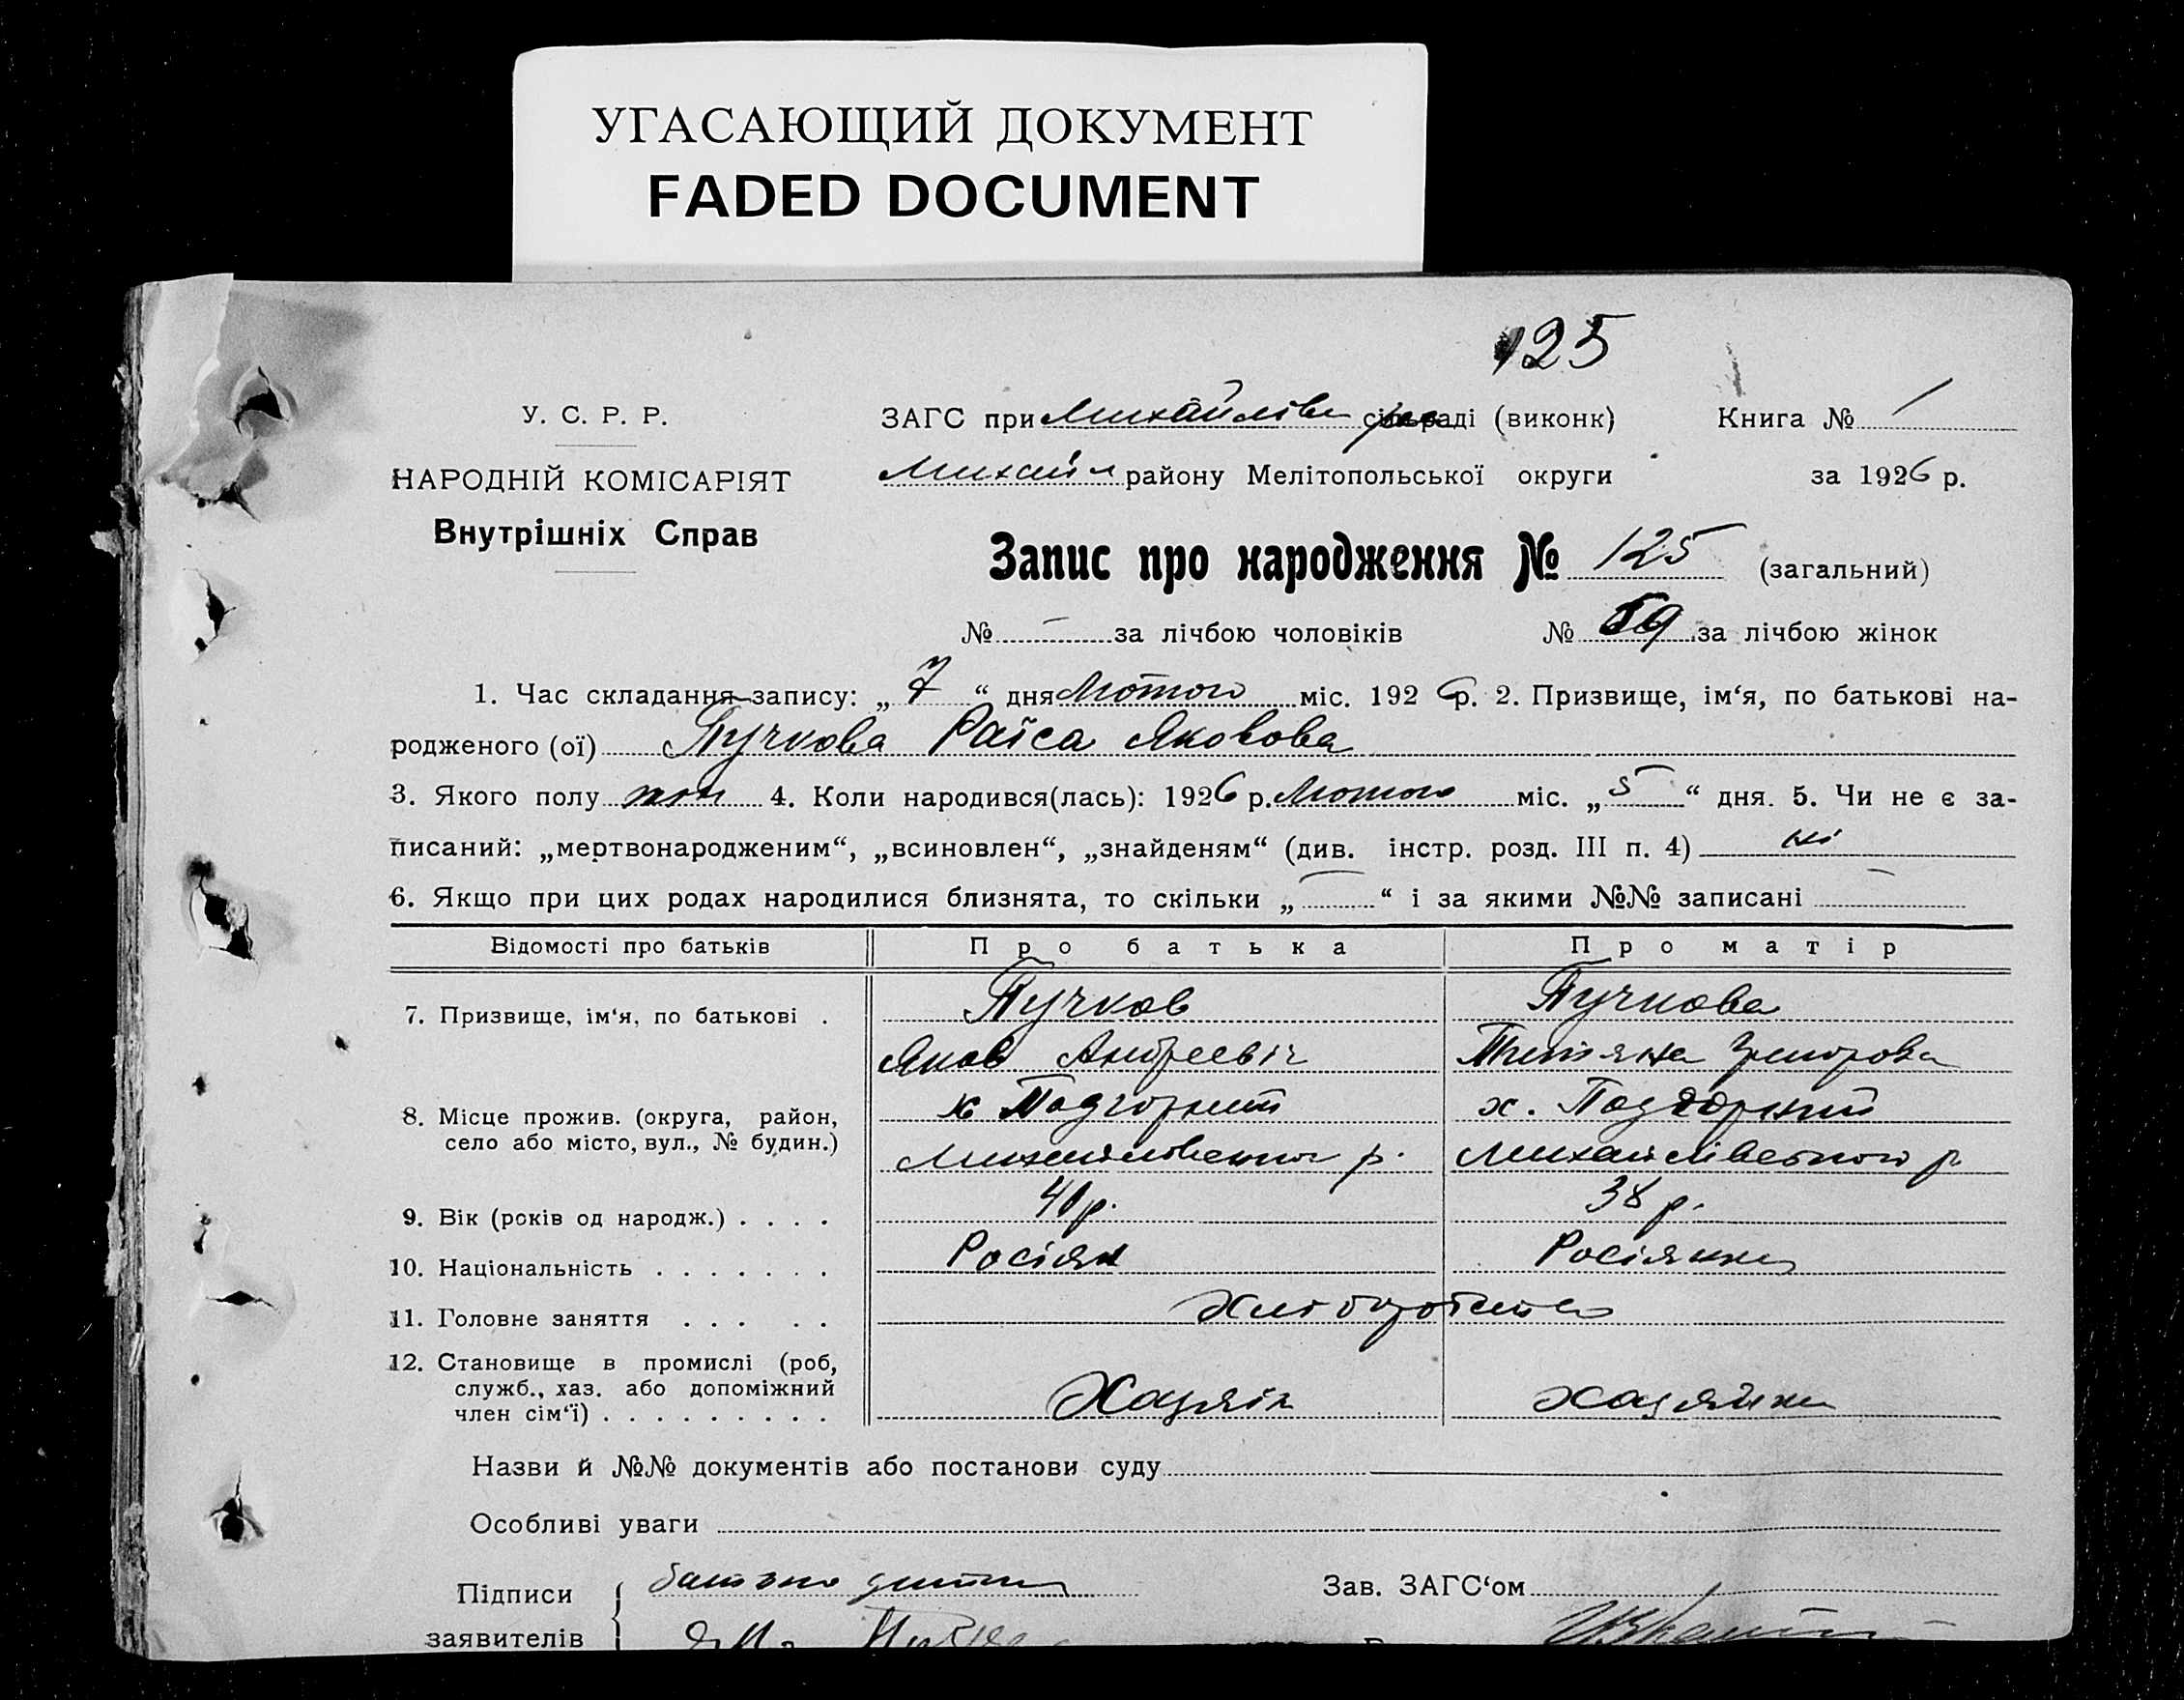 УГАСАЮЩИЙ ДОКУМЕНТ
FADED DOCUMENT
125
У. С. Р. Р.
ЗАГС при Михайлівс сільраді (виконк)
Книга № 1
НАРОДНІЙ КОМІСАРІЯТ
Михайл району Мелітопольської округи
за 1926 р.
Внутрішніх Справ
Запис про народження № 125 (загальний)
№ — за лічбою чоловіків № 59 за лічбою жінок
1. Час складання запису: „ 7 “ дня Лютого міс. 1926 р. 2. Призвище, ім‘я, по батькові на-
родженого (ої) Пучкова Раїса Яковова
3. Якого полу жін 4. Коли народився(лась): 1926 р. Лютого міс. „ 5 “ дня. 5. Чи не є за-
писаний: „мертвонародженим“, „всиновлен“, „знайденям“ (див. інстр. розд. III п. 4) ні
6. Якщо при цих родах народилися близнята, то скільки „ — “ і за якими №№ записані —
Відомості про батьків
Про батька
Про матір
7. Призвище, ім‘я, по батькові .
Пучков
Пучкова
Яков Андреевіч
Тетяна
8. Місце прожив. (округа, район,
село або місто, вул., № будин.)
х Подгорний
х. Подгорний
Михайлівського р.
Михайлівського р
9. Вік (років од народж.) . . . .
40 р.
38 р.
10. Національність . . . . . . .
Росіян
Росіянка
11. Головне заняття . . . . .
Хліборобство
12. Становище в промислі (роб,
служб., хаз. або допоміжний
член сім‘ї) . . . . . . . . .
Хазяїн
хазяйка
Назви й №№ документів або постанови суду
Особливі уваги
Підписи
заявителів
батько дитини
Зав. ЗАГС‘ом